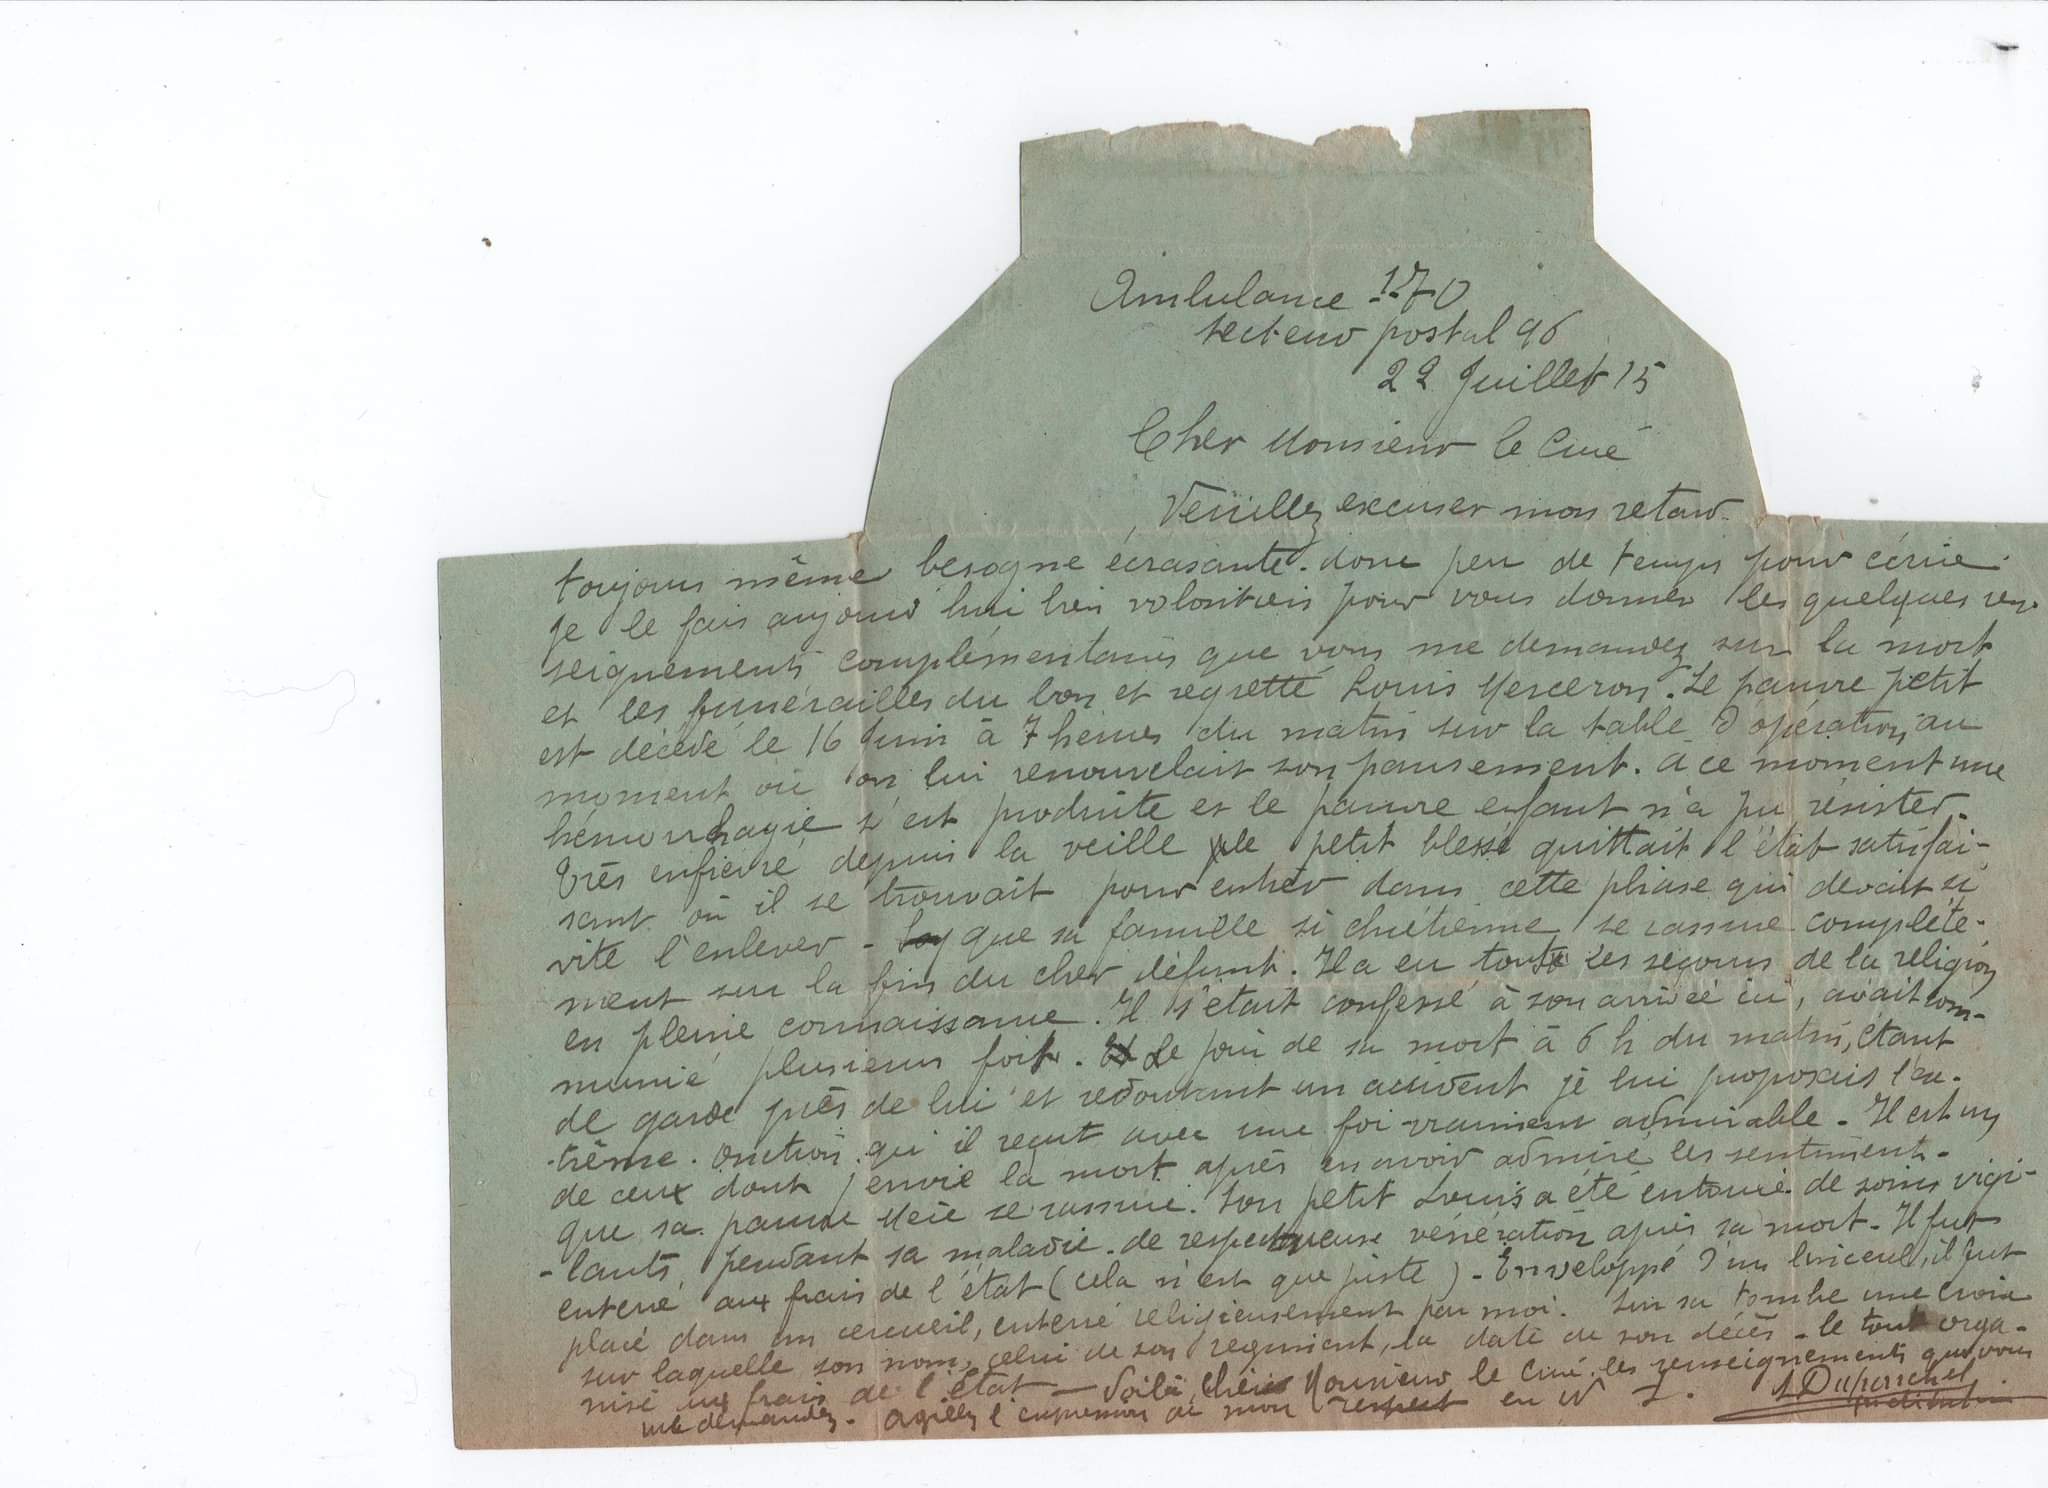 Ambulance 170
secteur postal 96
22 Juillet 15
Cher Monsieur le Curé
Veuillez excuser mon retard.
toujours même besogne écrasante. donc peu de temps pour écrire.
Je le fais aujourd hui bien volontiers pour vous donner les quelques ren-
seignements complémentaires que vous me demandez sur la mort
et les funérailles du bon et regretté Louis Merceron. Le pauvre petit
est décédé le 16 Juin à 7 heures du matin sur la table d'opération, au
moment où on lui renouvelait son pansement. à ce moment une
hémorrhagie s'est produite et le pauvre enfant n'a pu résister.
Très enfiévré depuis la veille le petit blessé quittait l'état satisfai-
sant où il se trouvait pour entrer dans cette phase qui devait si
vite l'enlever - que sa famille si chrétienne se rassure complète-
ment sur la fin du cher défunt. Il a eu tous les secours de la religion
en pleine connaissance. Il s'était confessé à son arrivée ici, avait com-
munié plusieurs fois. Le jour de sa mort à 6 h du matin, étant
de garde près de lui et redoutant un accident je lui proposais l'ex-
trême. onction qu'il reçut avec une foi vraiment admirable - Il est un
de ceux dont j'envie la mort après en avoir admiré les sentiments -
que sa pauvre Mère se rassure. Son petit Louis a été entouré de soins vigi-
-lants, pendant sa maladie. de respectueuse vénération après sa mort - Il fut
enterré aux frais de l'état (cela n'est que juste) - Enveloppé d'un linceul, il fut
placé dans un cercueil, enterré religieusement par moi. Sur sa tombe une croix
sur laquelle son nom, celui de son regiment, la date de son décès - le tout orga-
nisé aux frais de l'état - Voilà, cher Monsieur le Curé les renseignements que vous
me demandez. agréez l'expression de mon respect en N S.